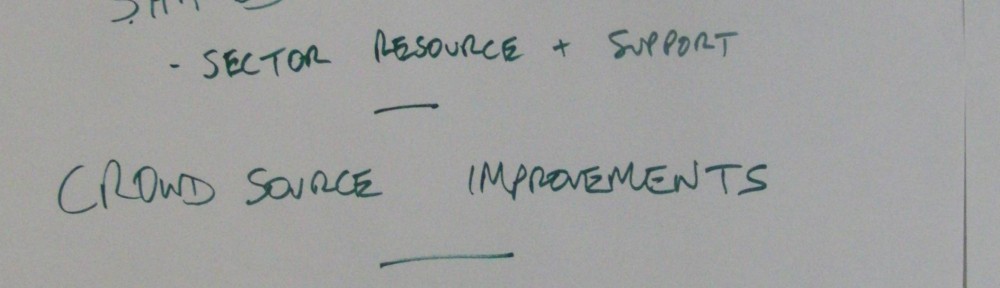 - SECTOR RESOURCE + SUPPORT
CROWD SOURCE IMPROVEMENTS